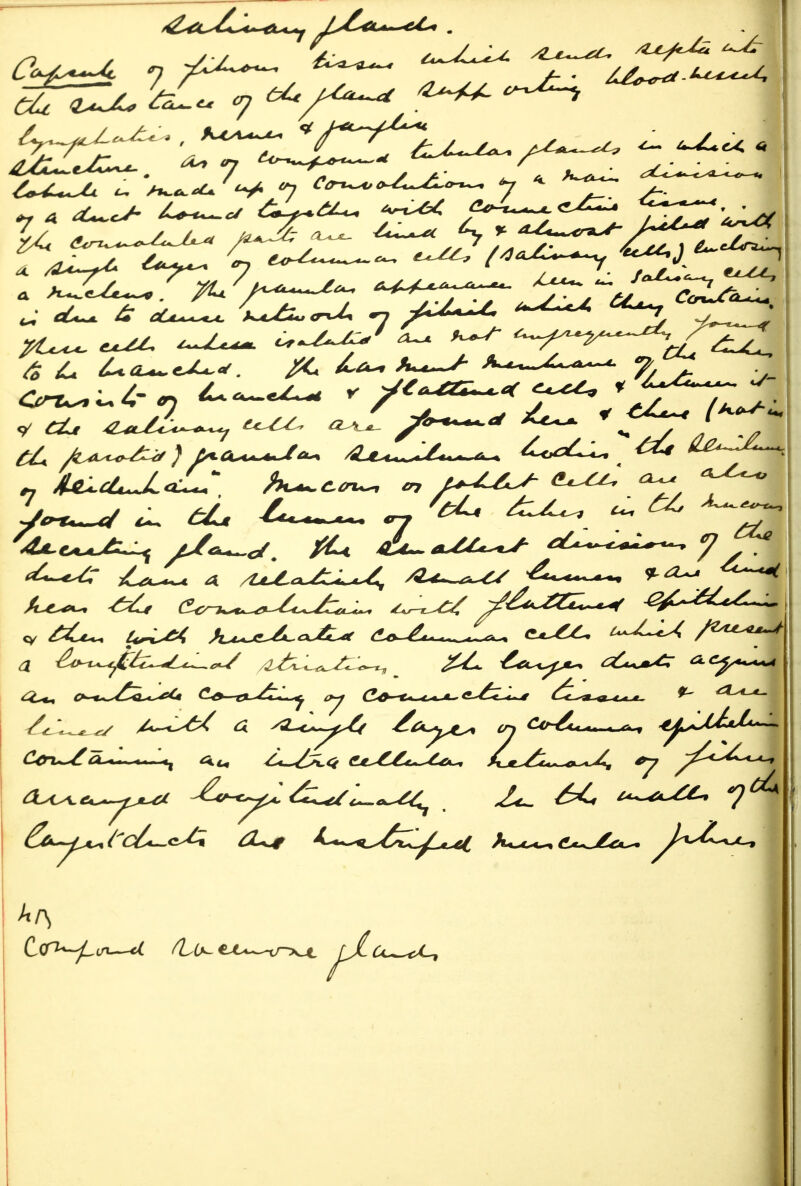 Salivary glands.
Capsule of fibrous tissue which sends septa into
the substance of the gland supporting blood-vessels
lymphatics, nerves & ganglia
structure. As of compound tubular glands in which a
lobule is made up of convolutions of a main division
of a duct bound together with connective tissue.
The convoluted parts are lined by & almost filled with
a single layer of columnar cells (salivary cells) enclosing
a nucleus. The granular appearance seen in salivary cells
is due to dense network of fibrils which they contain.
These cells when isolated are not unfrequently found
to be branched. The basement membrane of the tubes
consists of branched & flattened cells & between it
& the salivary cells are found here & there (not in
the parotid) granular semilunar bodies "the semilunes
of Heidenhain". Mucous or goblet cells are also
found in the lumen of the tubes in the mucous
secreting gland. The smallest divisions of the
ducts have a relatively small lumen & are lined
near the convolutions with flattened epithelium
& then with nucleated columnar cells which present
a longitudinal striation. The larger ducts acquire
an outside coating of connective tissue & are
lined with a single layer of columnar epithelium
containing an intracellular network of fibres
arranged longitudinally. In the walls of the
largest ducts are unstriped muscular fibres
NB
Compound racemose glands